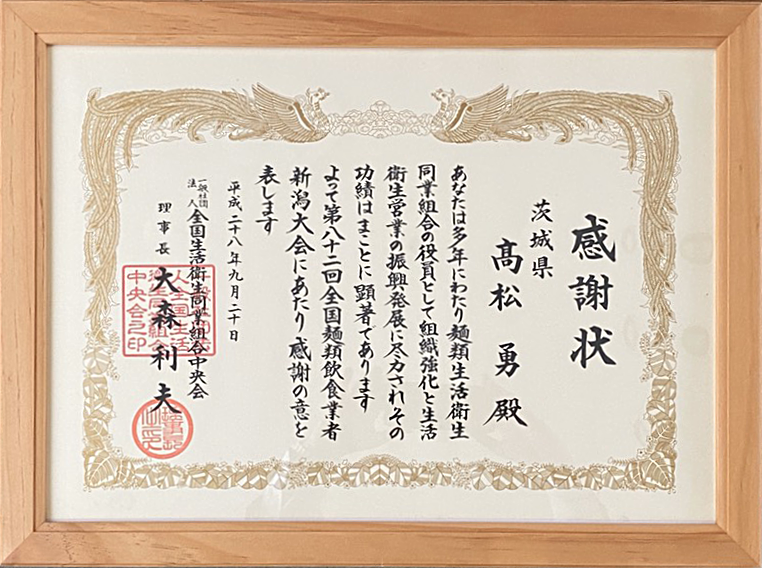 感謝状
茨城県
髙松勇殿
あなたは多年にわたり麺類生活衛生
同業組合の役員として組織強化と生活
衛生営業の振興発展に尽力されその
功績はまことに顕著であります
よって第八十二回全国麺類飲食業者
新潟大会にあたり感謝の意を
表します
平成二十八年九月二十日
一般社団法人全国生活衛生同業組合中央会
理事長大森利夫